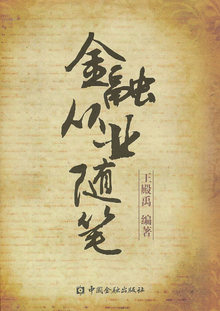 金融从业随笔
王殿禹 编著
中国金融出版社